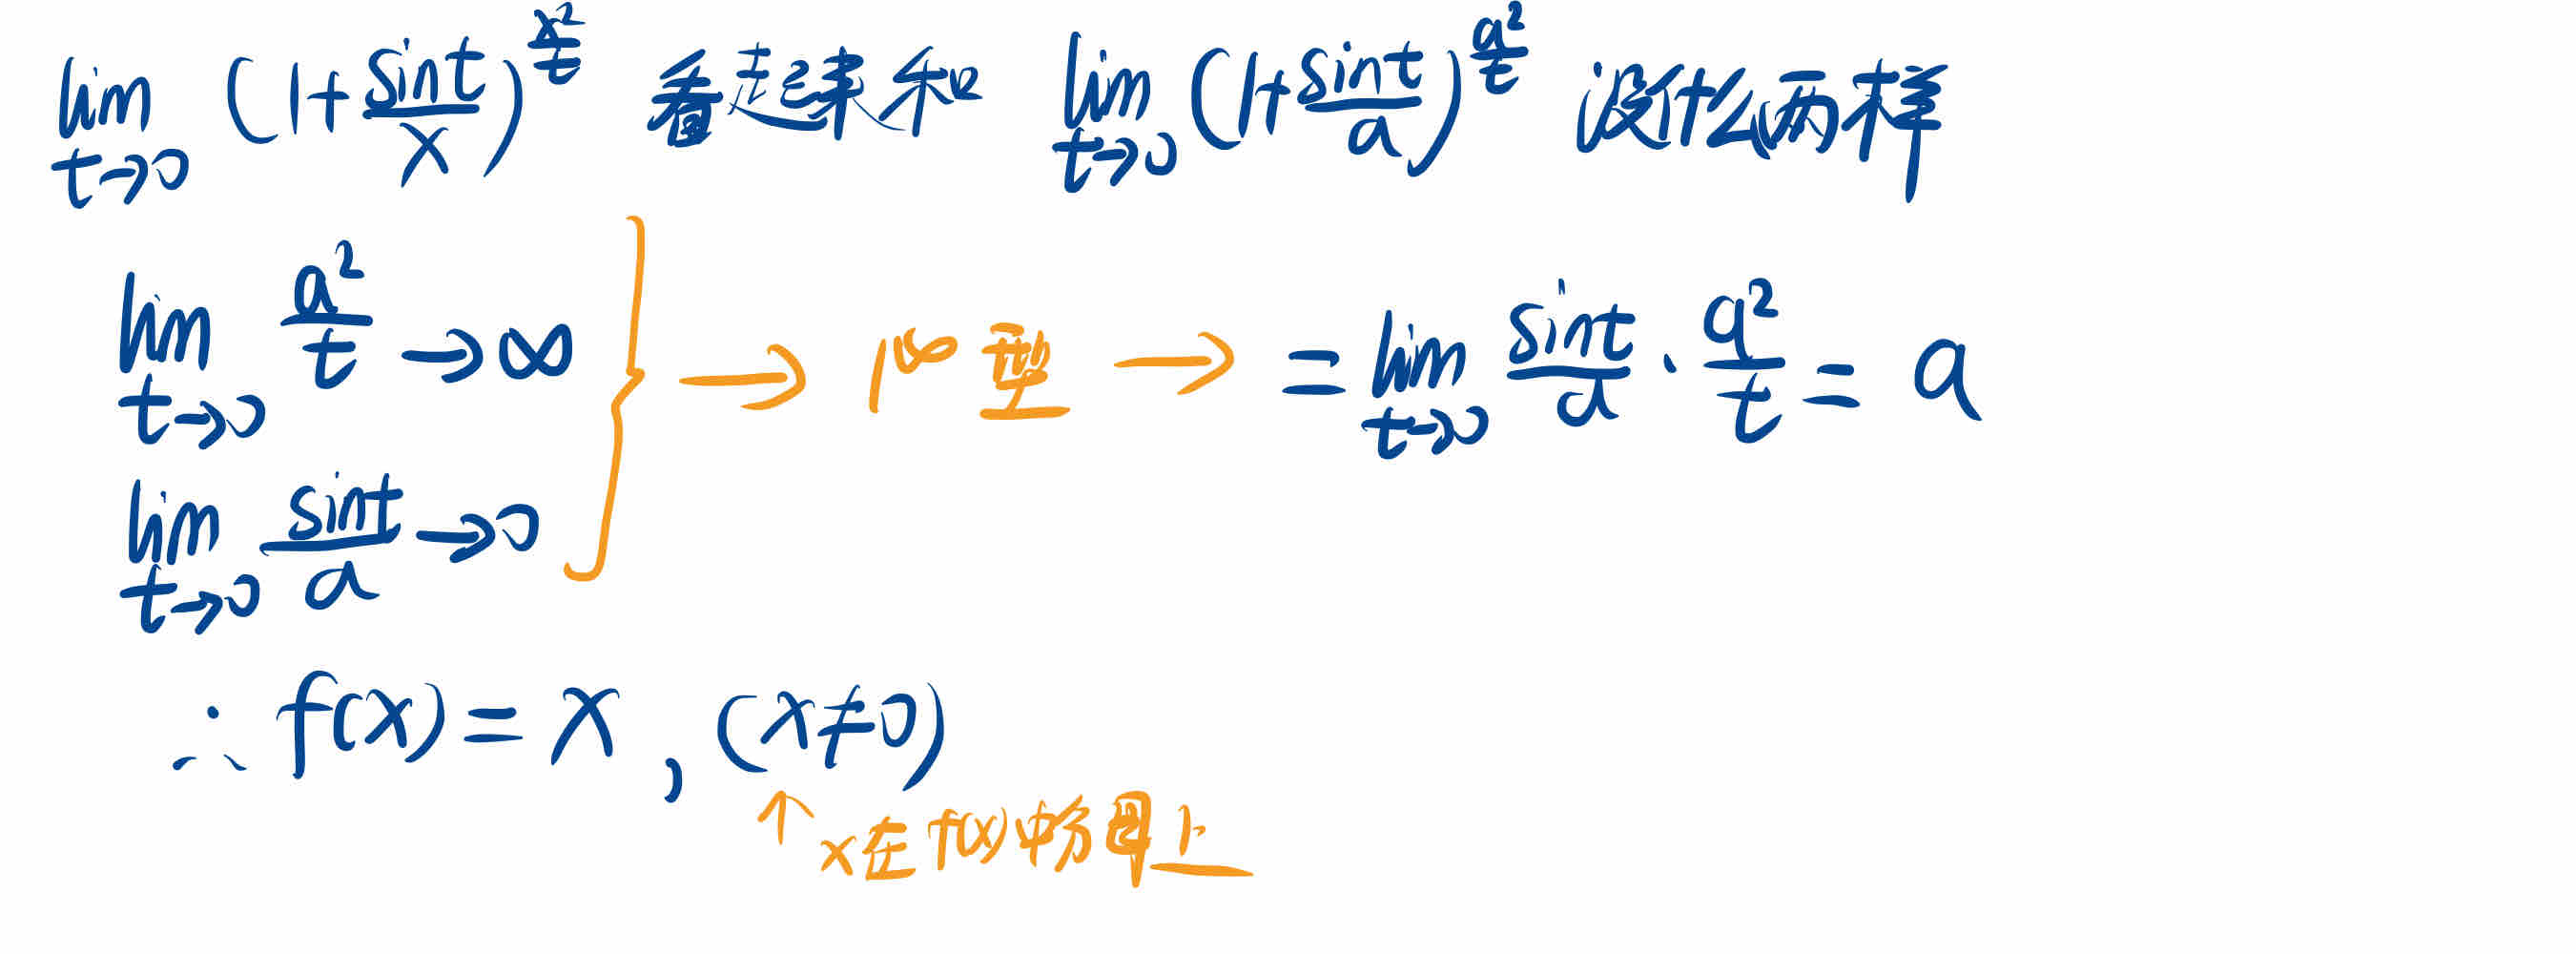 lim t→0 (1+sint/x)^(x²/t) 看起来和 lim t→0 (1+sint/a)^(a²/t) 没什么两样
lim t→0 a²/t →∞
→ 1^∞ 型 → = lim t→0 sint/a · a²/t = a
lim t→0 sint/a →0
∴ f(x) = x , (x≠0)
↑ x在f(x)中分母上